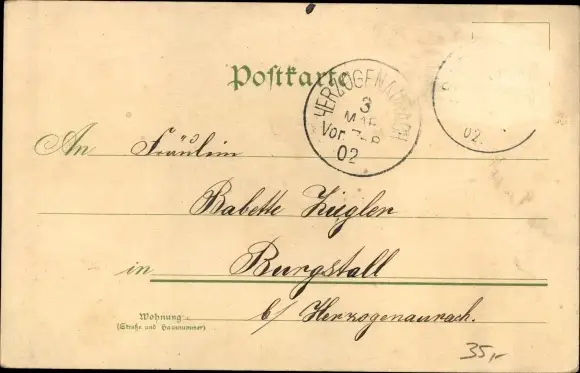 Postkarte
HERZOGENAURACH
3
MAR
Vor. 7-8
02
02.
An Fräulein
Babette Zügler
in Burgstall
b/ Herzogenaurach.
Wohnung
(Straße und Hausnummer)
35,-